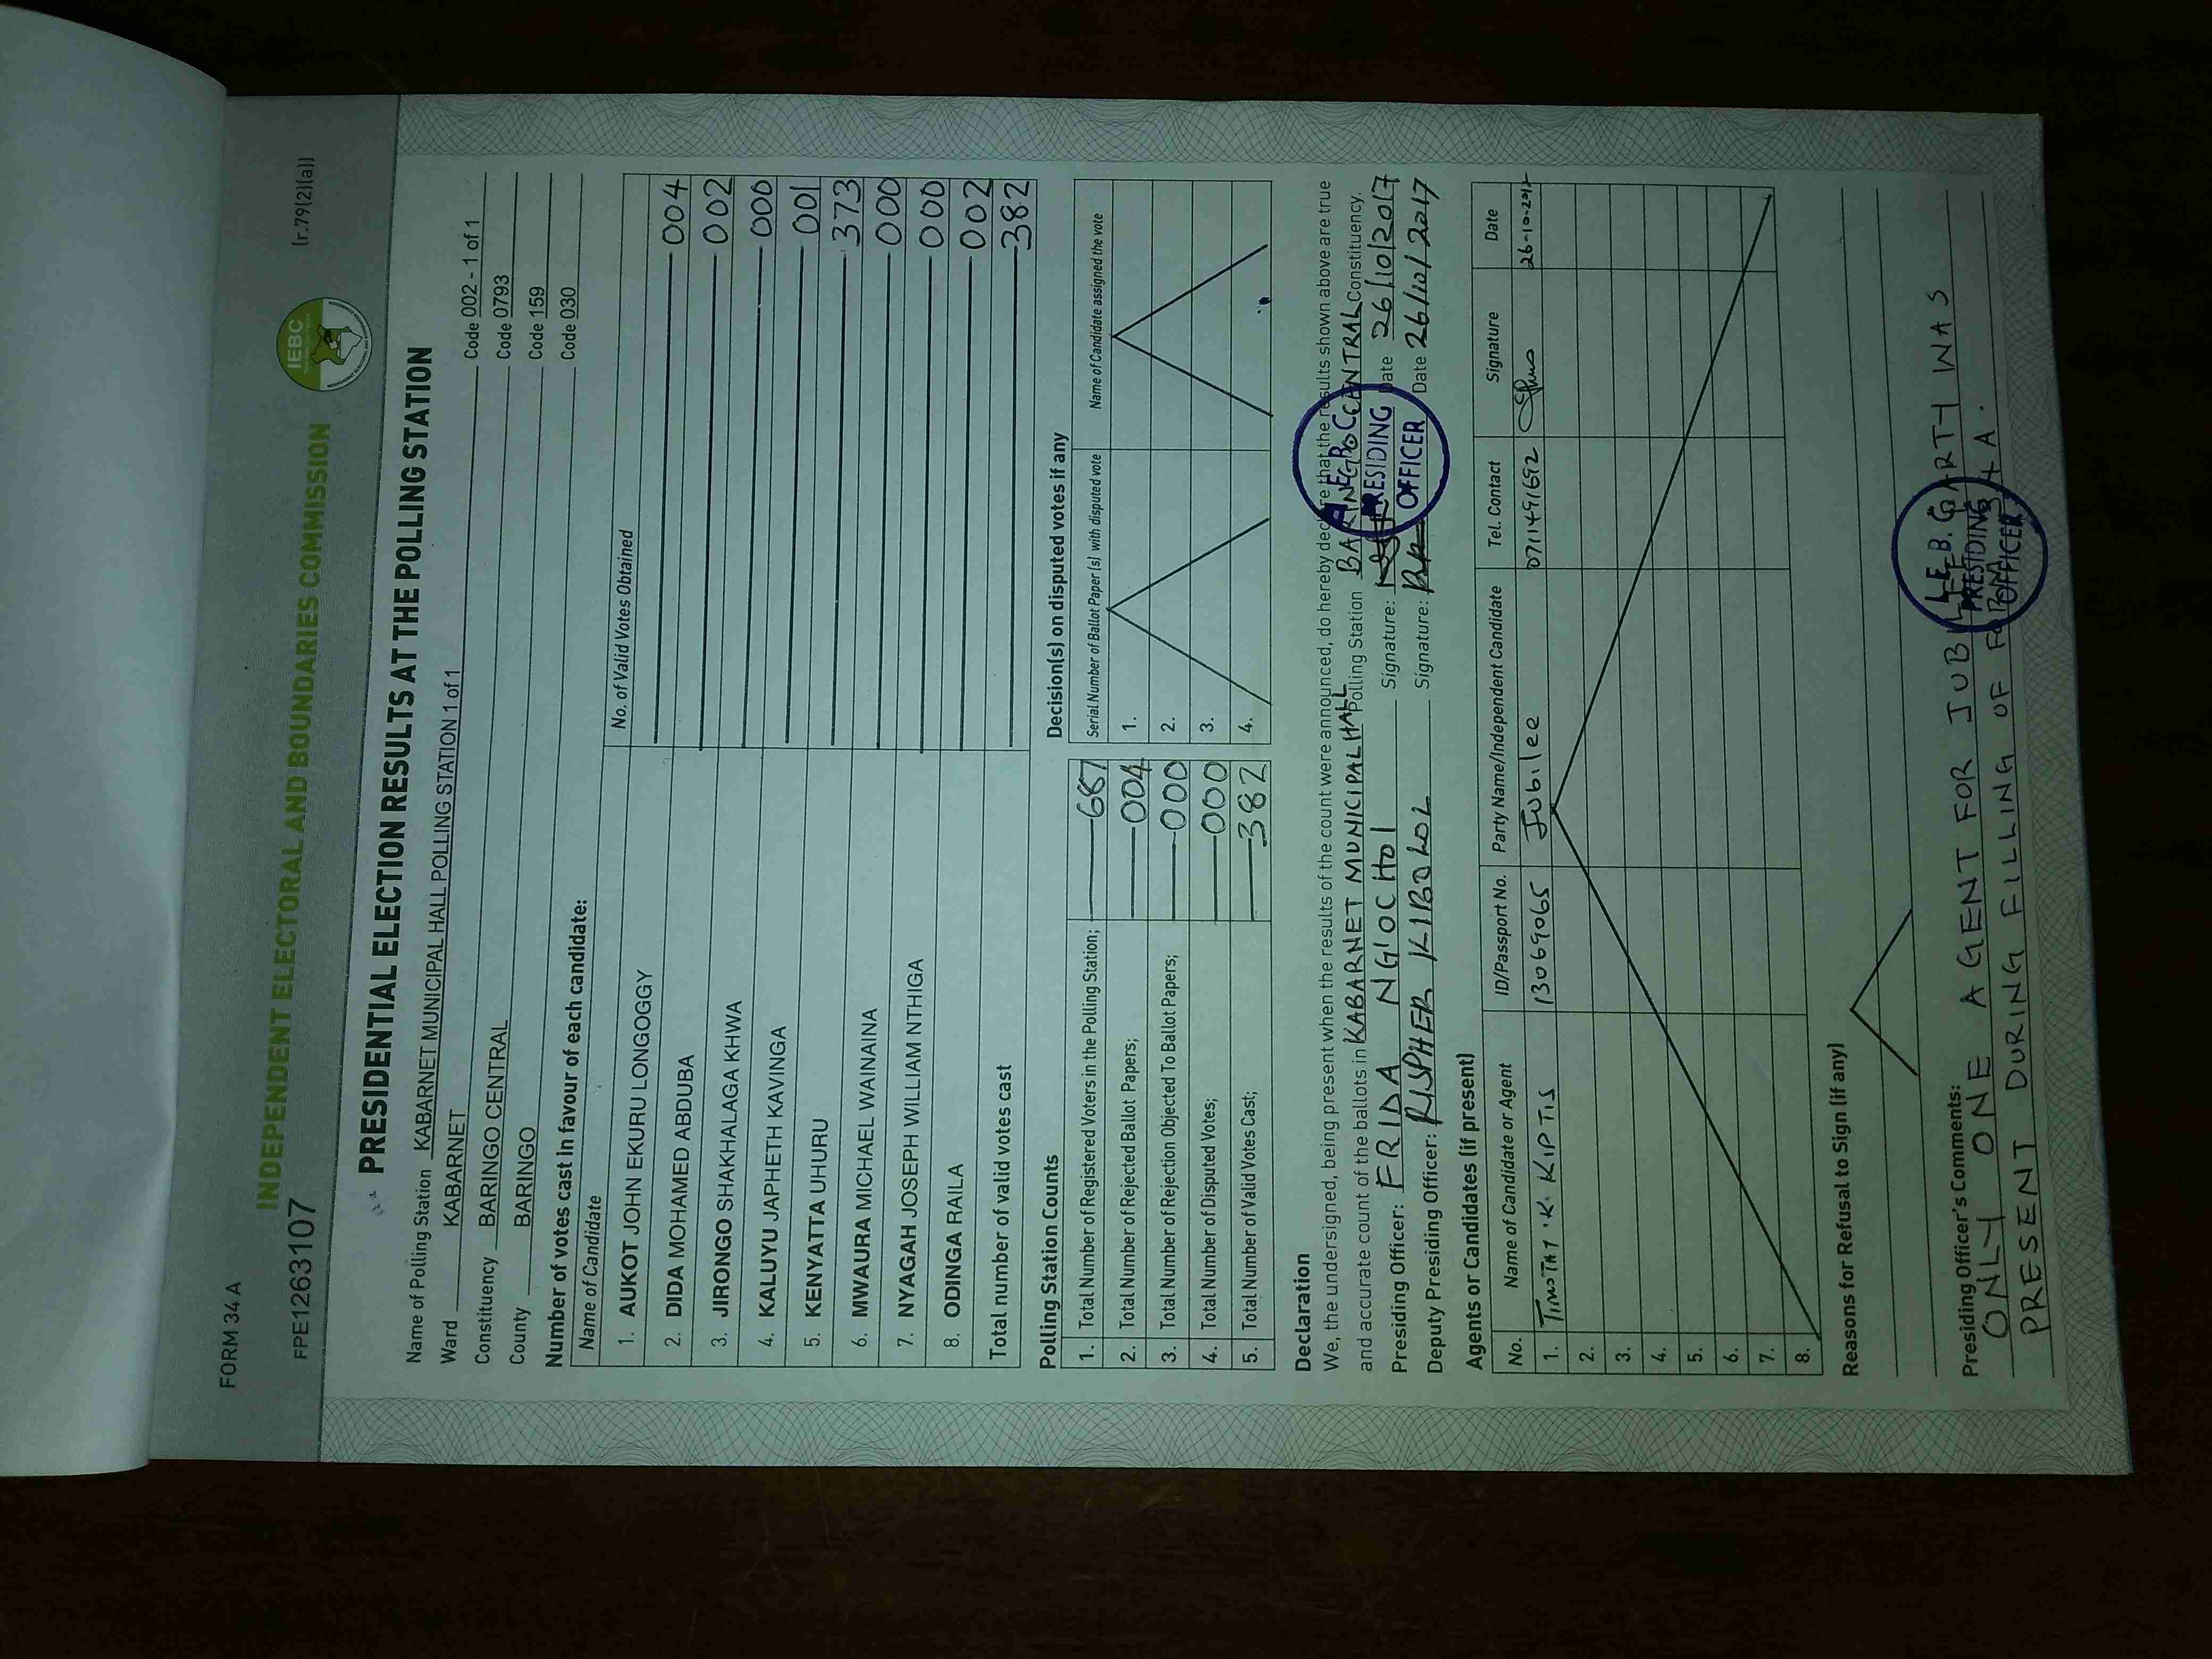 FORM 34 A
(r.79(2)(a))
INDEPENDENT ELECTORAL AND BOUNDARIES COMMISSION
IEBC
FPE1263107
PRESIDENTIAL ELECTION RESULTS AT THE POLLING STATION
Name of Polling Station KABARNET MUNICIPAL HALL POLLING STATION 1 of 1 Code 002 - 1 of 1
Ward KABARNET Code 0793
Constituency BARINGO CENTRAL Code 159
County BARINGO Code 030
Number of votes cast in favour of each candidate:
Name of Candidate No. of Valid Votes Obtained
1. AUKOT JOHN EKURU LONGOGGY 004
2. DIDA MOHAMED ABDUBA 002
3. JIRONGO SHAKHALAGA KHWA 000
4. KALUYU JAPHETH KAVINGA 001
5. KENYATTA UHURU 373
6. MWAURA MICHAEL WAINAINA 000
7. NYAGAH JOSEPH WILLIAM NTHIGA 000
8. ODINGA RAILA 002
Total number of valid votes cast 382
Polling Station Counts
1. Total Number of Registered Voters in the Polling Station; 687
2. Total Number of Rejected Ballot Papers; 004
3. Total Number of Rejection Objected To Ballot Papers; 000
4. Total Number of Disputed Votes; 000
5. Total Number of Valid Votes Cast; 382
Decision(s) on disputed votes if any
Serial Number of Ballot Paper (s) with disputed vote Name of Candidate assigned the vote
1.
2.
3.
4.
Declaration
We, the undersigned, being present when the results of the count were announced, do hereby declare that the results shown above are true
and accurate count of the ballots in KABARNET MUNICIPAL HALL Polling Station BARINGO CENTRAL Constituency.
Presiding Officer: FRIDA NG'OCHOI Signature: Date 26/10/2017
Deputy Presiding Officer: RISPHER KIBOLOL Signature: Date 26/10/2017
PRESIDING
OFFICER
Agents or Candidates (if present)
No. Name of Candidate or Agent ID/Passport No. Party Name/Independent Candidate Tel. Contact Signature Date
1. TIMOTHY .K. KIPTIS 13069065 Jubilee 0711491692 26-10-2017
2.
3.
4.
5.
6.
7.
8.
Reasons for Refusal to Sign (if any)
Presiding Officer's Comments:
ONLY ONE AGENT FOR JUBILEE PARTY WAS
PRESENT DURING FILLING OF FORM 34 A.
I.E.B.C
PRESIDING
OFFICER